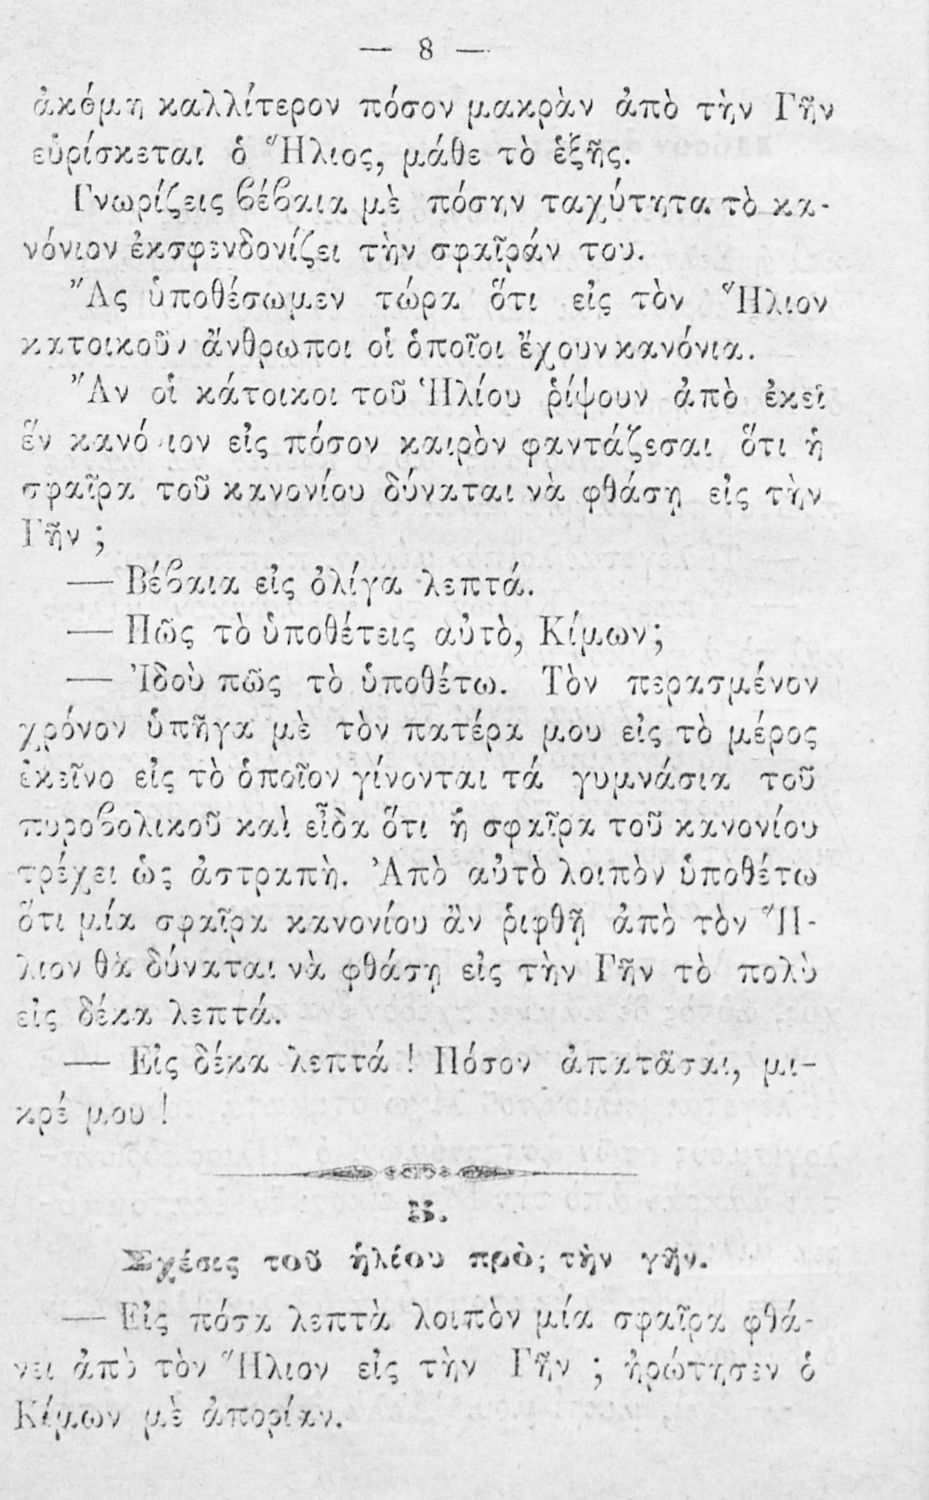 — 8 —
ἀκόμη καλλίτερον πόσον μακρὰν ἀπὸ τὴν Γῆν
εὑρίσκεται ὁ Ἥλιος, μάθε τὸ ἑξῆς.
Γνωρίζεις βέβαια μὲ πόσην ταχύτητα τὸ κα-
νόνιον ἐκσφενδονίζει τὴν σφαῖράν του.
Ἂς ὑποθέσωμεν τώρα ὅτι εἰς τὸν Ἥλιον
κατοικοῦν ἄνθρωποι οἱ ὁποῖοι ἔχουν κανόνια.
Ἂν οἱ κάτοικοι τοῦ Ἡλίου ῥίψουν ἀπὸ ἐκεῖ
ἓν κανόνιον εἰς πόσον καιρὸν φαντάζεσαι ὅτι ἡ
σφαῖρα τοῦ κανονίου δύναται νὰ φθάσῃ εἰς τὴν
Γῆν ;
— Βέβαια εἰς ὀλίγα λεπτά.
— Πῶς τὸ ὑποθέτεις αὐτὸ, Κίμων;
— Ἰδοὺ πῶς τὸ ὑποθέτω. Τὸν περασμένον
χρόνον ὑπῆγα μὲ τὸν πατέρα μου εἰς τὸ μέρος
ἐκεῖνο εἰς τὸ ὁποῖον γίνονται τά γυμνάσια τοῦ
πυροβολικοῦ καὶ εἶδα ὅτι ἡ σφαῖρα τοῦ κανονίου
τρέχει ὡς ἀστραπὴ. Ἀπὸ αὐτὸ λοιπὸν ὑποθέτω
ὅτι μία σφαῖρα κανονίου ἂν ῥιφθῇ ἀπὸ τὸν Ἥ-
λιον θὰ δύναται νὰ φθάσῃ εἰς τὴν Γῆν τὸ πολὺ
εἰς δέκα λεπτά.
— Εἰς δέκα λεπτά ! Πόσον ἀπατᾶσαι, μι-
κρέ μου !
Β.
Σχέσις τοῦ ἡλίου πρὸς τὴν γῆν.
— Εἰς πόσα λεπτὰ λοιπὸν μία σφαῖρα φθά-
νει ἀπὸ τὸν Ἥλιον εἰς τὴν Γῆν ; ἠρώτησεν ὁ
Κίμων μὲ ἀπορίαν.